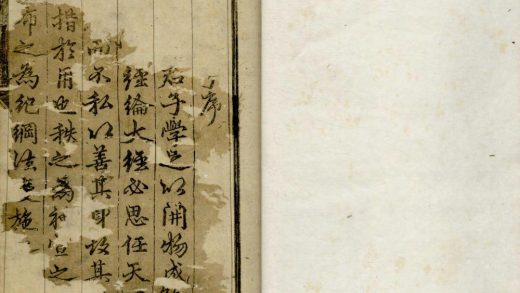 序
君子學道以開物成
經綸大經必思任天
而不私以善其身故其
措於用也秩之為禮宣之
布之為紀綱法度施